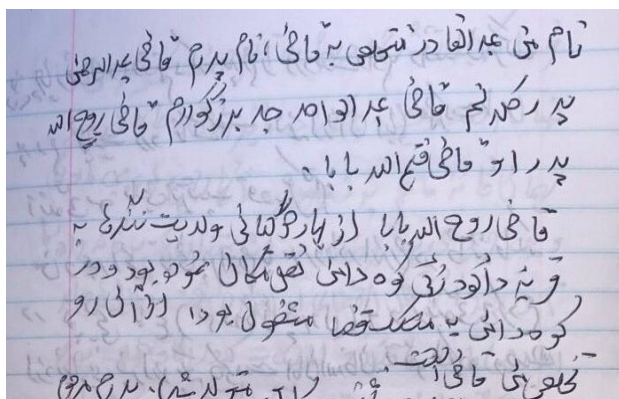 نام من عبدالقادر متخلص به قاضی، نام پدرم قاضی عبدالرحمن
پدر کلانم قاضی عبدالواحد جد بزرگوارم قاضی روح الله
پدر او قاضی فتح الله بابا.
قاضی روح الله بابا از پارچگانی ولایت ننگرهار به
قریه داودزئی کوه دامن نقل مکان نموده بود و در
کوهدامن به مسلک قضا مشغول بود، از آن رو
تخلص من قاضی است.